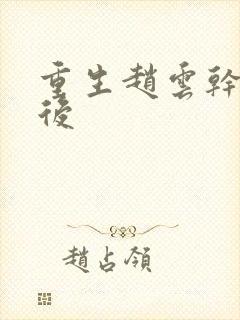 重生趙雲幹
後
趙占領